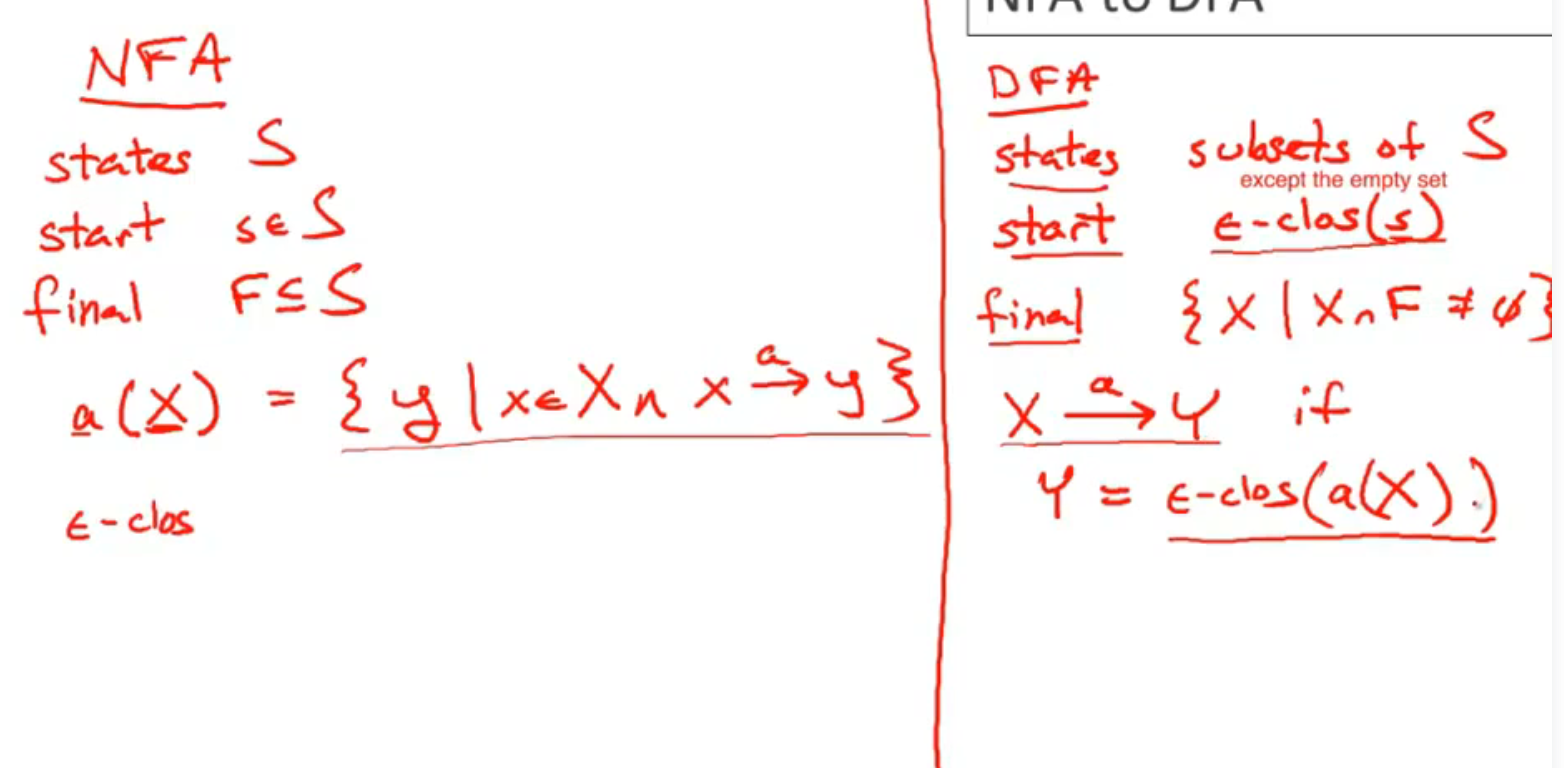 NFA
states S
start s∈S
final F⊆S
a(X) = {y | x∈X ∧ x →ᵃ y}
ε-clos
NFA to DFA
DFA
states subsets of S
except the empty set
start ε-clos(s)
final {X | X∩F ≠ ∅}
X →ᵃ Y if
Y = ε-clos(a(X).)